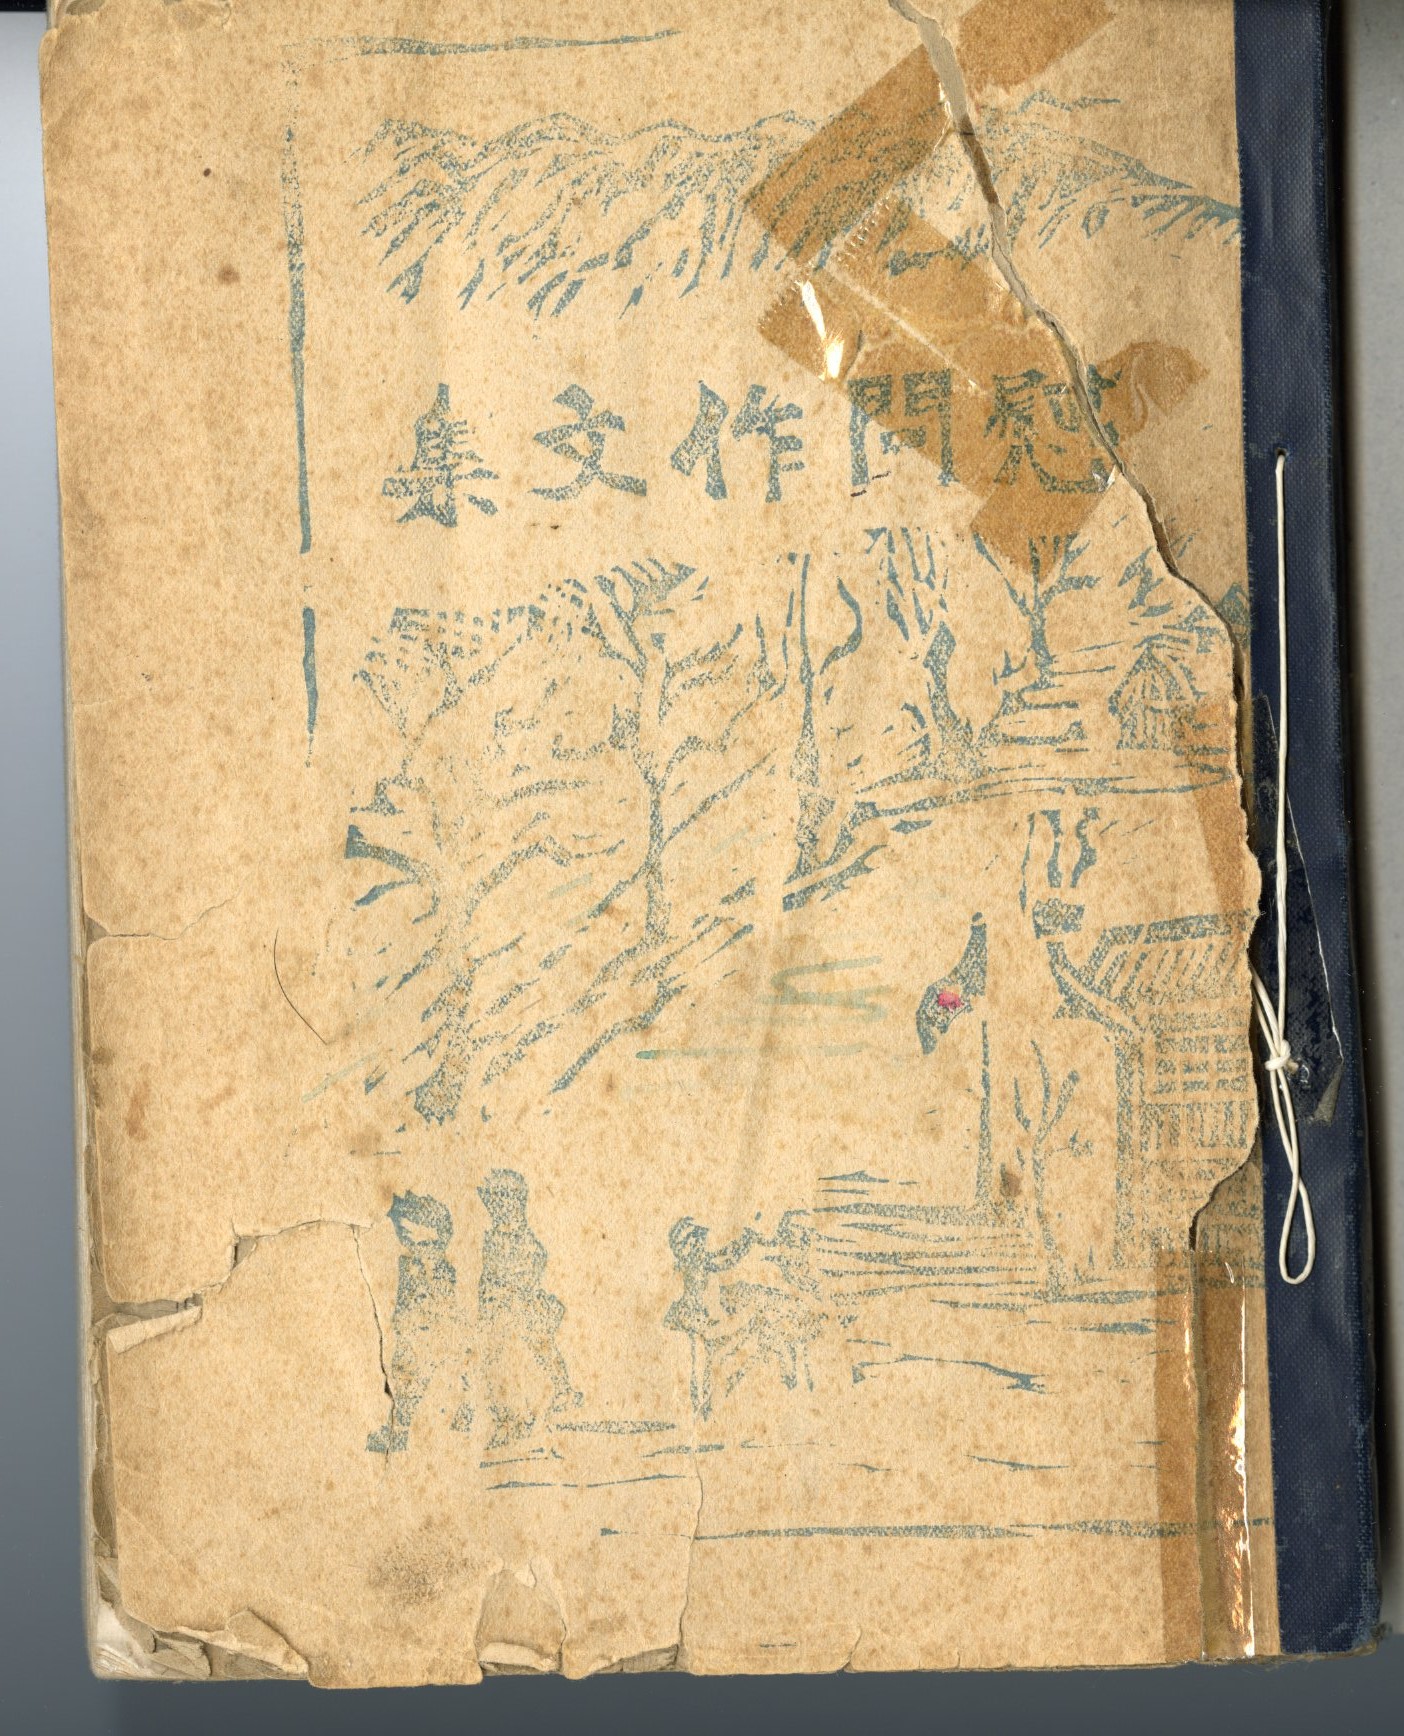 慰問作文集